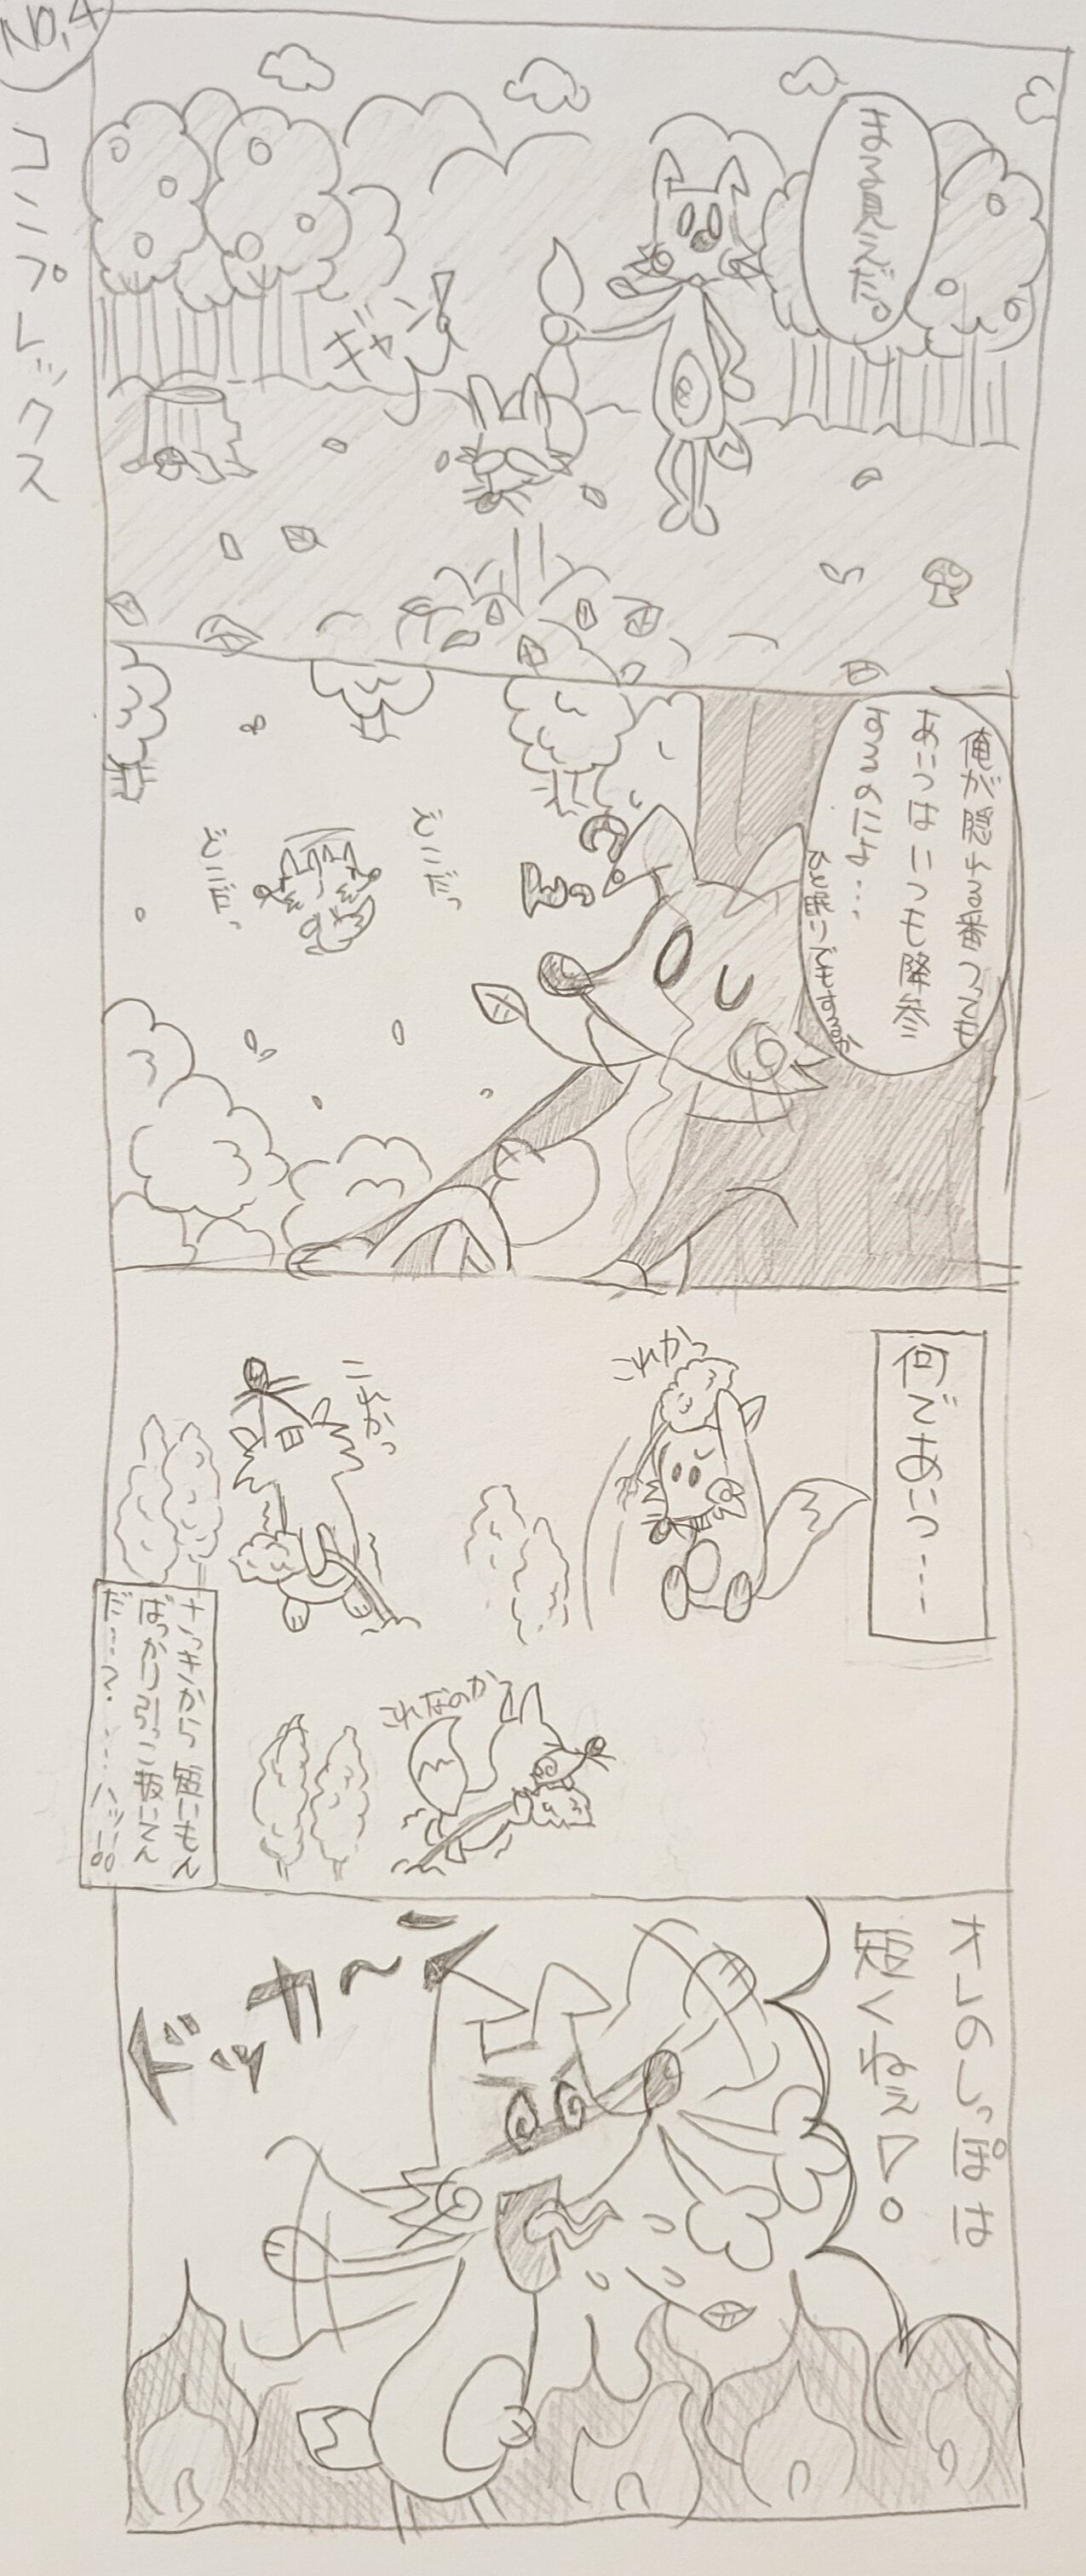 No.4
コンプレックス
はい見っけだ。
ギャン!
俺が隠れる番つっても
あいつはいつも降参
するのによ…
ひと眠りでもするか
どこだっ
どこだっ
何であいつ…
これかっ
これかっ
これなのか
さっきから短いもん
ばっかり引っこ抜いてん
だ…?……ハッ!!
オレのしっぽは
短くねぇ!
ドッカーン